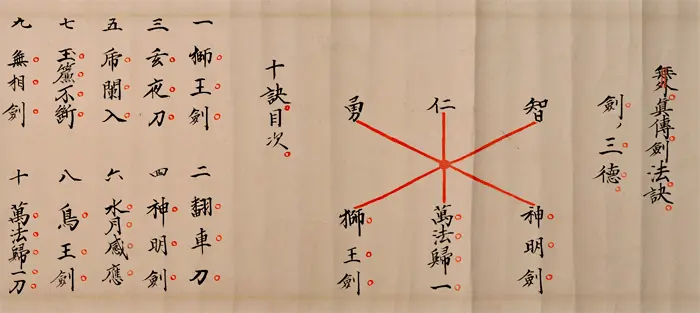 無外眞傳劍法訣
劍ノ三德
智
仁
勇
神明劍
萬法歸一
獅王劍
十訣目次
一 獅王劍
二 翻車刀
三 玄夜刀
四 神明劍
五 虎闌入
六 水月感應
七 玉簾不斷
八 鳥王劍
九 無相劍
十 萬法歸一刀